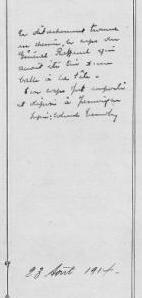 Ce détachement trouva
en chemin, le corps du
Général Raffenel qui
avait été tué d'une
balle à la tête.
Son corps fut emporté
et déposé à
23 Août 1914.